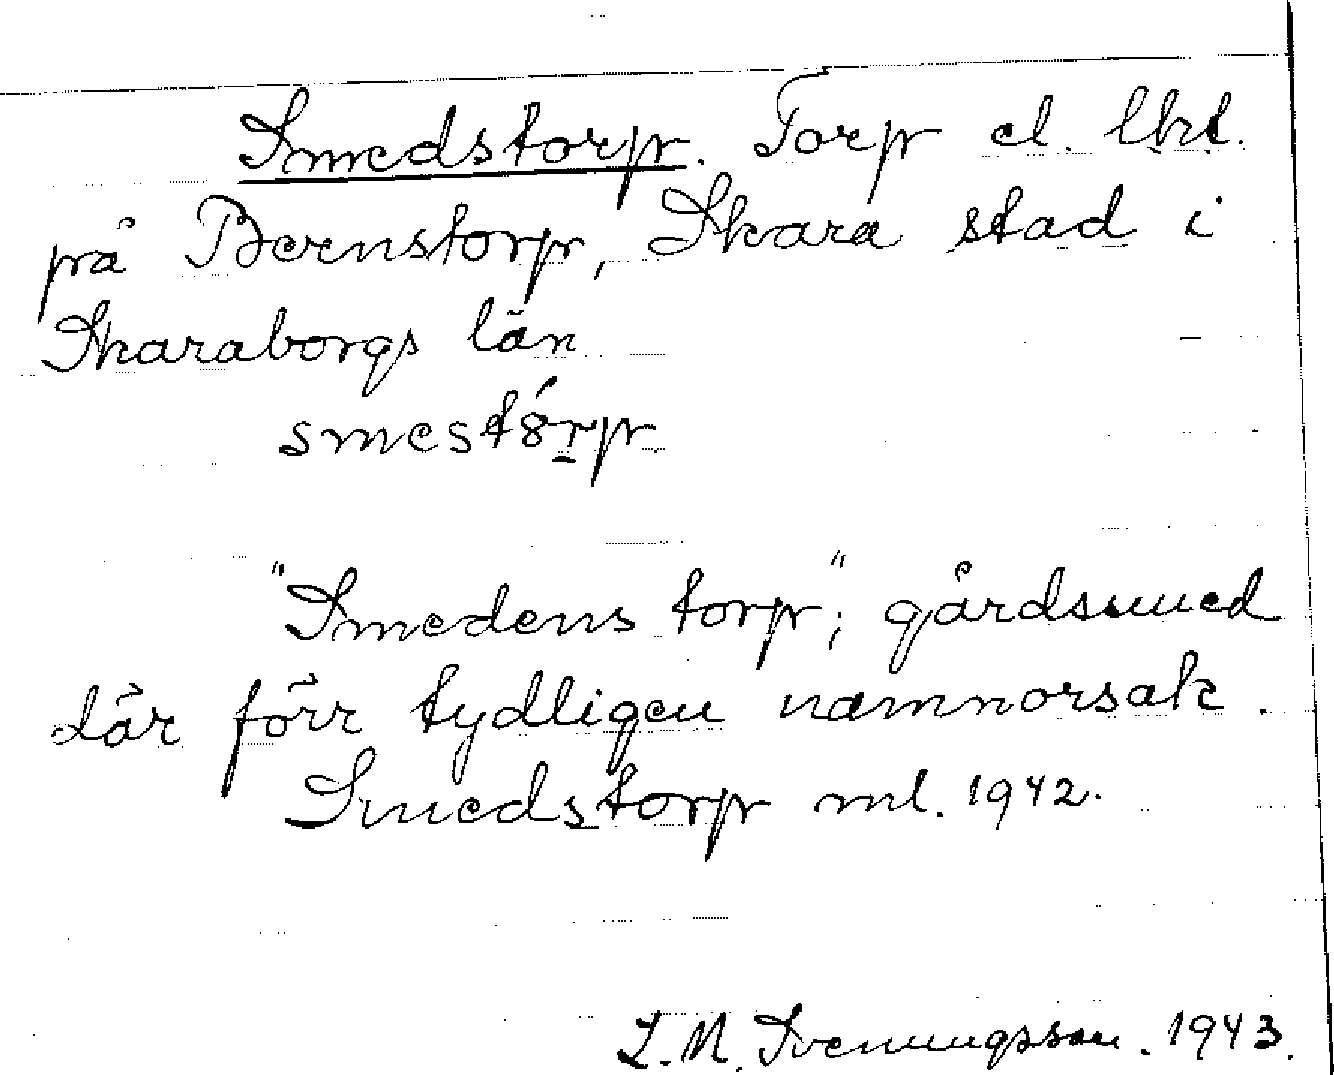 Smedstorp. Torp el. lht.
på Bernstorp, Skara stad i
Skaraborgs län
smestȣ́rp
"Smedens torp"; gårdssmed
där förr tydligen namnorsak.
Smedstorp ml. 1942.
L. M. Svenungsson. 1943.